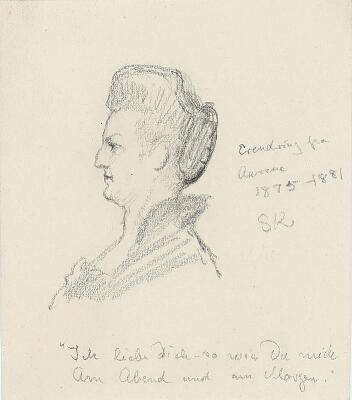 Erendring fra
Aarene
1875–1881
SK
"Ich liebe Dich – so wie Du mich
Am Abend und am Morgen."